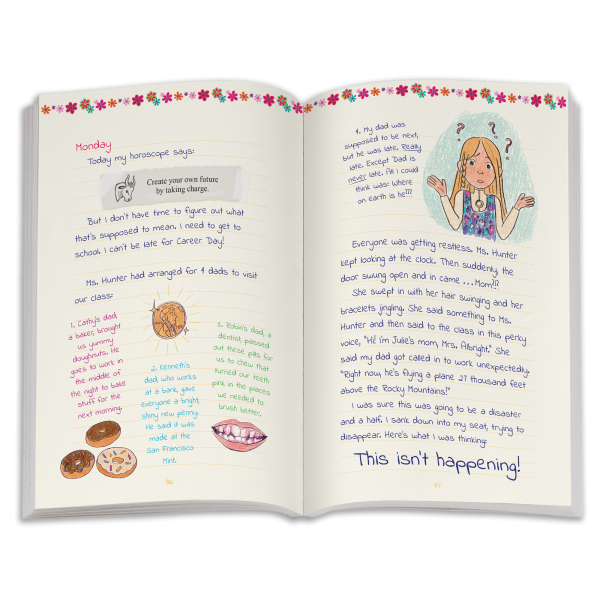 Monday
Today my horoscope says:
Create your own future
by taking charge.
But I don't have time to figure out what
that's supposed to mean. I need to get to
school. I can't be late for Career Day!
Ms. Hunter had arranged for 4 dads to visit
our class:
1. Cathy's dad,
a baker, brought
us yummy
doughnuts. He
goes to work in
the middle of
the night to bake
stuff for the
next morning.
2. Kenneth's
dad, who works
at a bank, gave
everyone a bright,
shiny new penny.
He said it was
made at the
San Francisco
Mint.
3. Robin's dad, a
dentist, passed
out these pills for
us to chew that
turned our teeth
pink in the places
we needed to
brush better.
36
4. My dad was
supposed to be next,
but he was late. Really
late. Except Dad is
never late. All I could
think was: Where
on earth is he???
Everyone was getting restless. Ms. Hunter
kept looking at the clock. Then suddenly, the
door swung open and in came ...Mom?!?
She swept in with her hair swinging and her
bracelets jingling. She said something to Ms.
Hunter and then said to the class in this perky
voice, "Hi! I'm Julie's mom, Mrs. Albright." She
said my dad got called in to work unexpectedly.
"Right now, he's flying a plane 27 thousand feet
above the Rocky Mountains!"
I was sure this was going to be a disaster
and a half. I sank down into my seat, trying to
disappear. Here's what I was thinking:
This isn't happening!
37